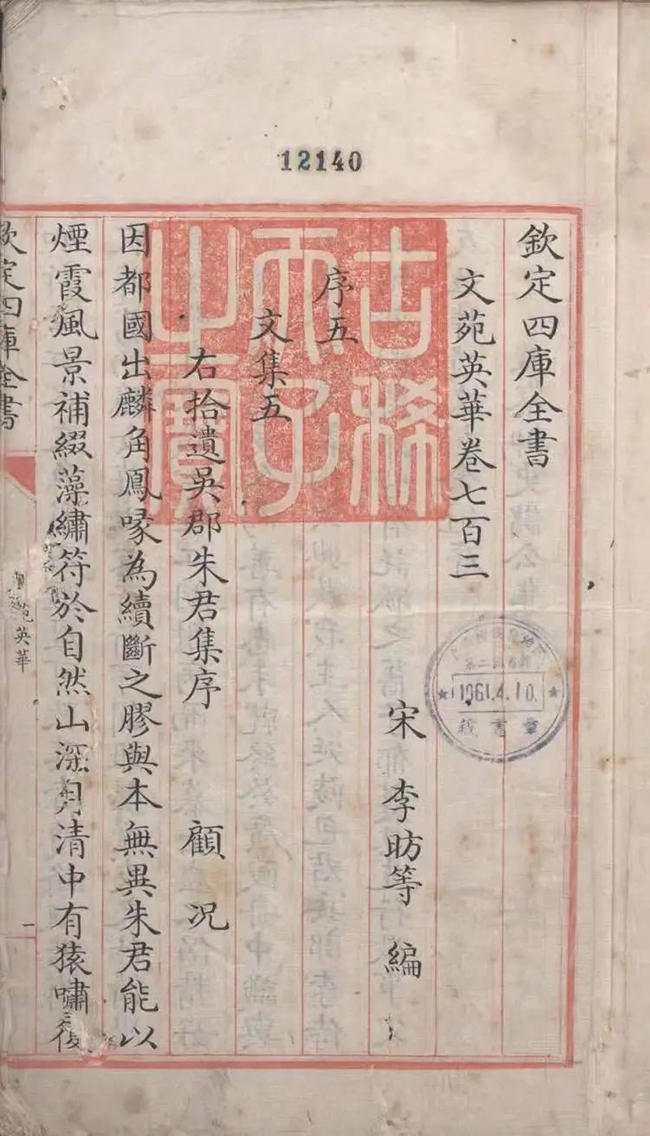 12140
欽定四庫全書
文苑英華卷七百三
宋 李昉等 編
序五
文集五
右拾遺吳郡朱君集序 顧况
因都國出麟角鳳喙為續斷之膠與本無異朱君能以
煙霞風景補綴藻繡符於自然山深月清中有猿嘯復
欽定四庫全書
苑英華
一
古稀天子之寶
1961.4.10.